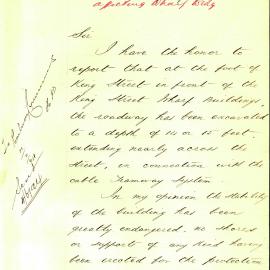 affecting Wharf Bldg
Sir
I have the honor to
report that at the foot of
King Street in front of the
King Street Wharf Buildings,
the roadway has been excavated
to a depth of 14 or 15 feet,
extending nearly across the
Street, in connection with the
cable Tramway System.
In my opinion the stability
of the building has been
greatly endangered, no shores
or supports of any kind having
been erected for the protection